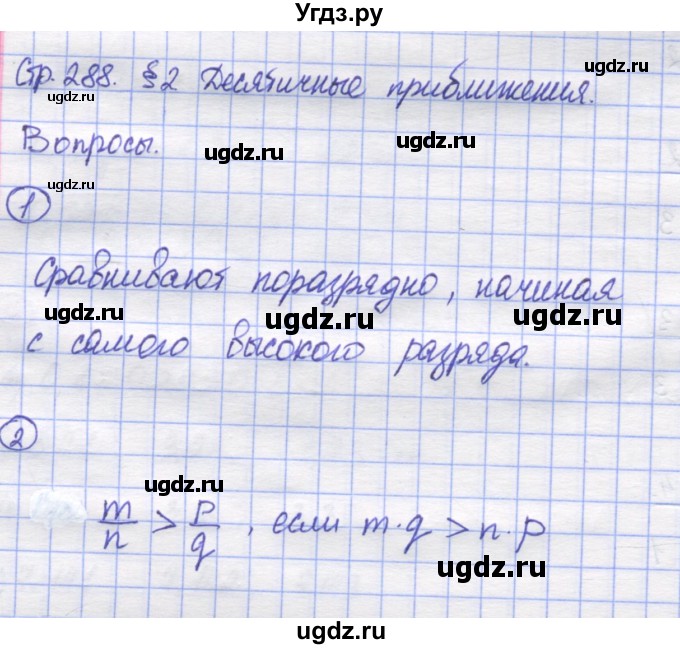 Угдз.ру
Стр. 288. §2 Десятичные приближения.
ugdz.ru
ugdz.ru
Вопросы.
ugdz.ru
ugdz.ru
1
Сравнивают поразрядно, начиная
ugdz.ru
ugdz.ru
ugdz.ru
с самого высокого разряда.
ugdz.ru
2
ugdz.ru
m/n > p/q, если m·q > n·p
ugdz.ru
ugdz.ru